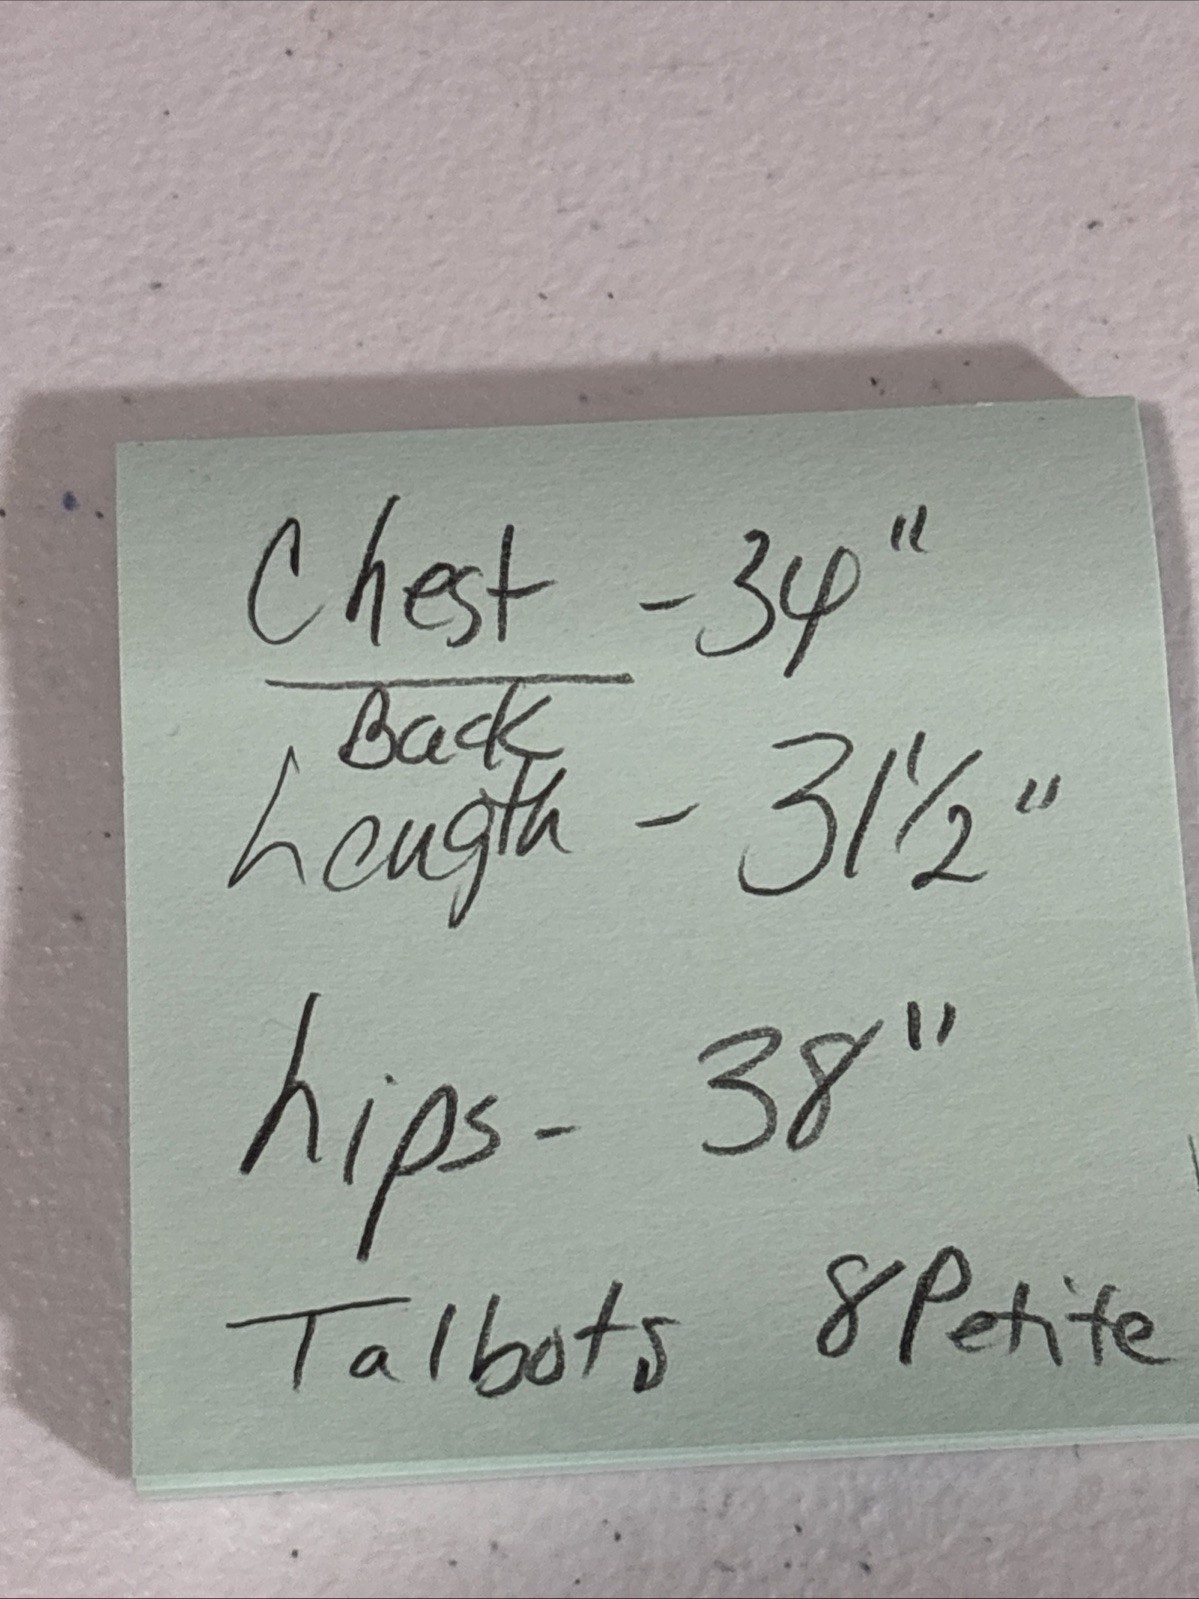 Chest - 34"
Back
Length - 31 1/2"
hips - 38"
Talbots 8 Petite